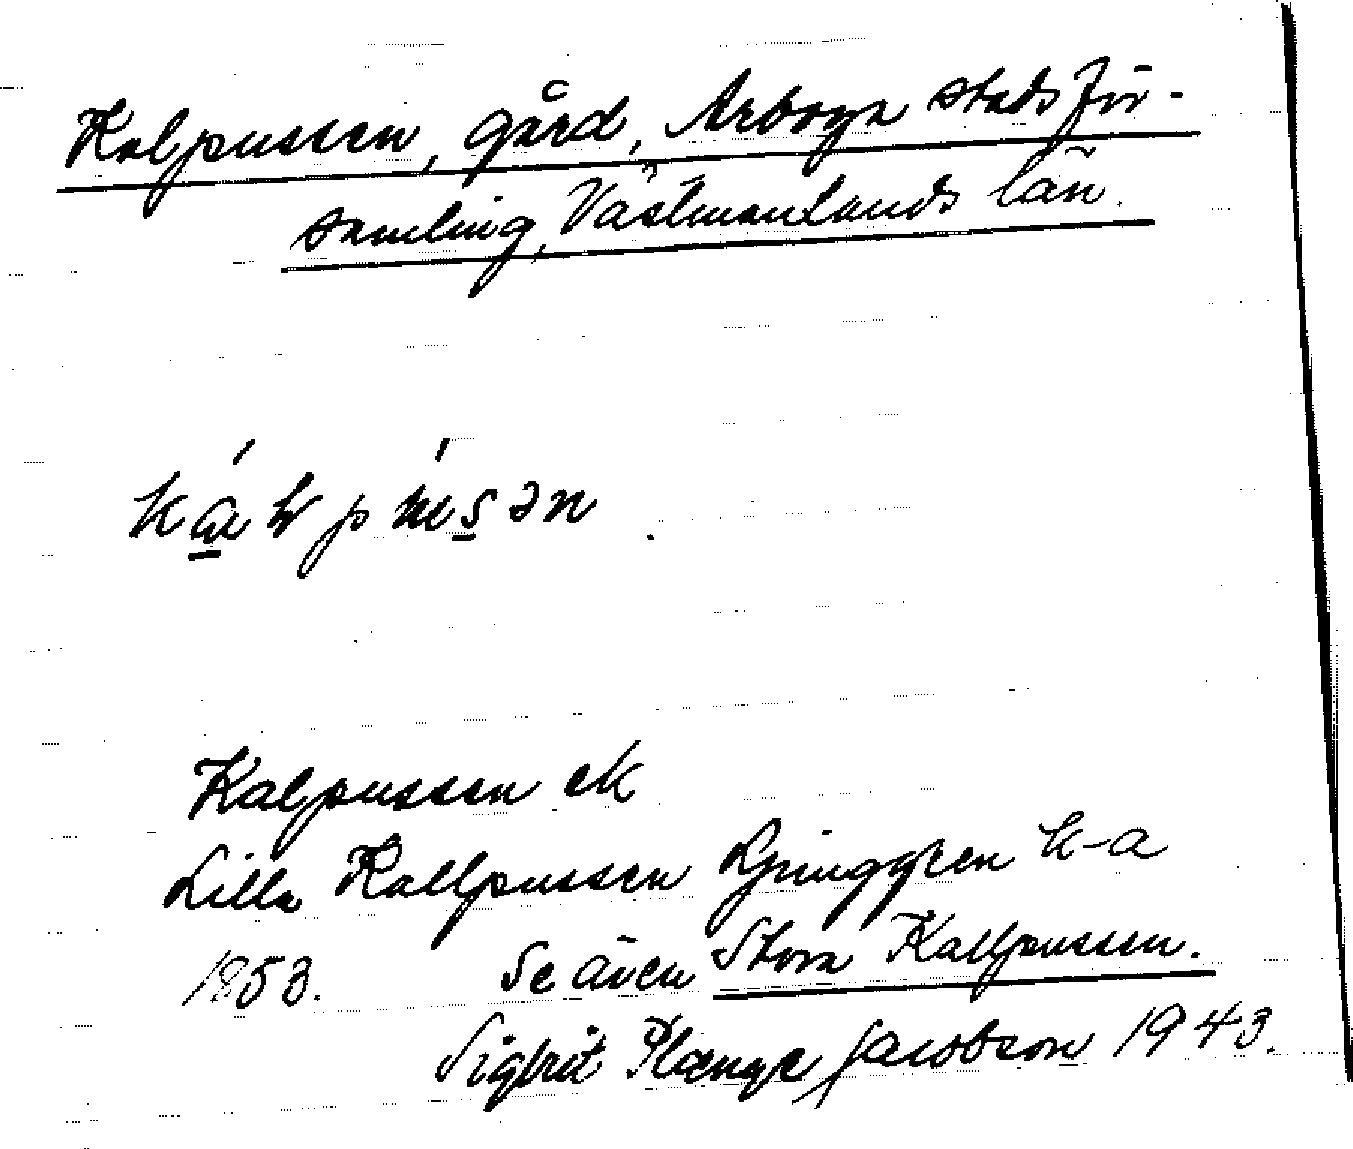 Kalpussen, gård, Arboga stadsför-
samling, Västmanlands län.
Kalpussen ek
Lilla Kallpussen Ljunggren k-a
1853. Se även Stora Kallpussen.
Sigfrid Plænge Jacobson 1943.